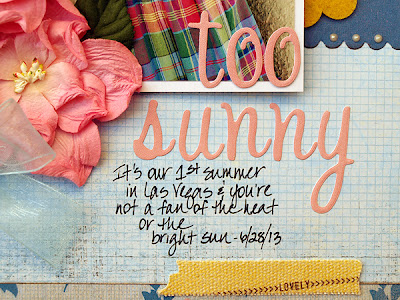 too
sunny
It's our 1st summer
in Las Vegas & you're
not a fan of the heat
or the
bright sun - 6/28/13
>>>>>LOVELY>>>>>>>>>>>>